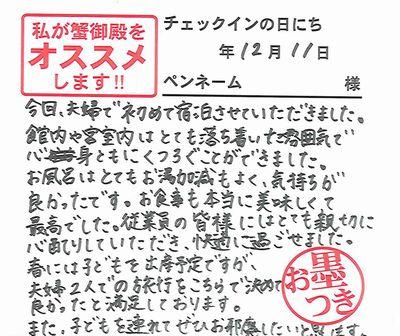 私が蟹御殿を
オススメ
します!!
チェックインの日にち
年12月11日
ペンネーム 様
今回、夫婦で初めて宿泊させていただきました。
館内や客室内はとても落ち着いた雰囲気で
心身ともにくつろぐことができました。
お風呂はとてもお湯加減もよく、気持ちが
良かったです。お食事も本当に美味しくて
最高でした。従業員の皆様にはとても親切に
心配りしていただき、快適に過ごせました。
春には子どもを出産予定ですが、
夫婦2人での旅行をこちらで決めて
良かったと満足しております。
また、子どもを連れてぜひお邪魔したいと思います。
お墨つき